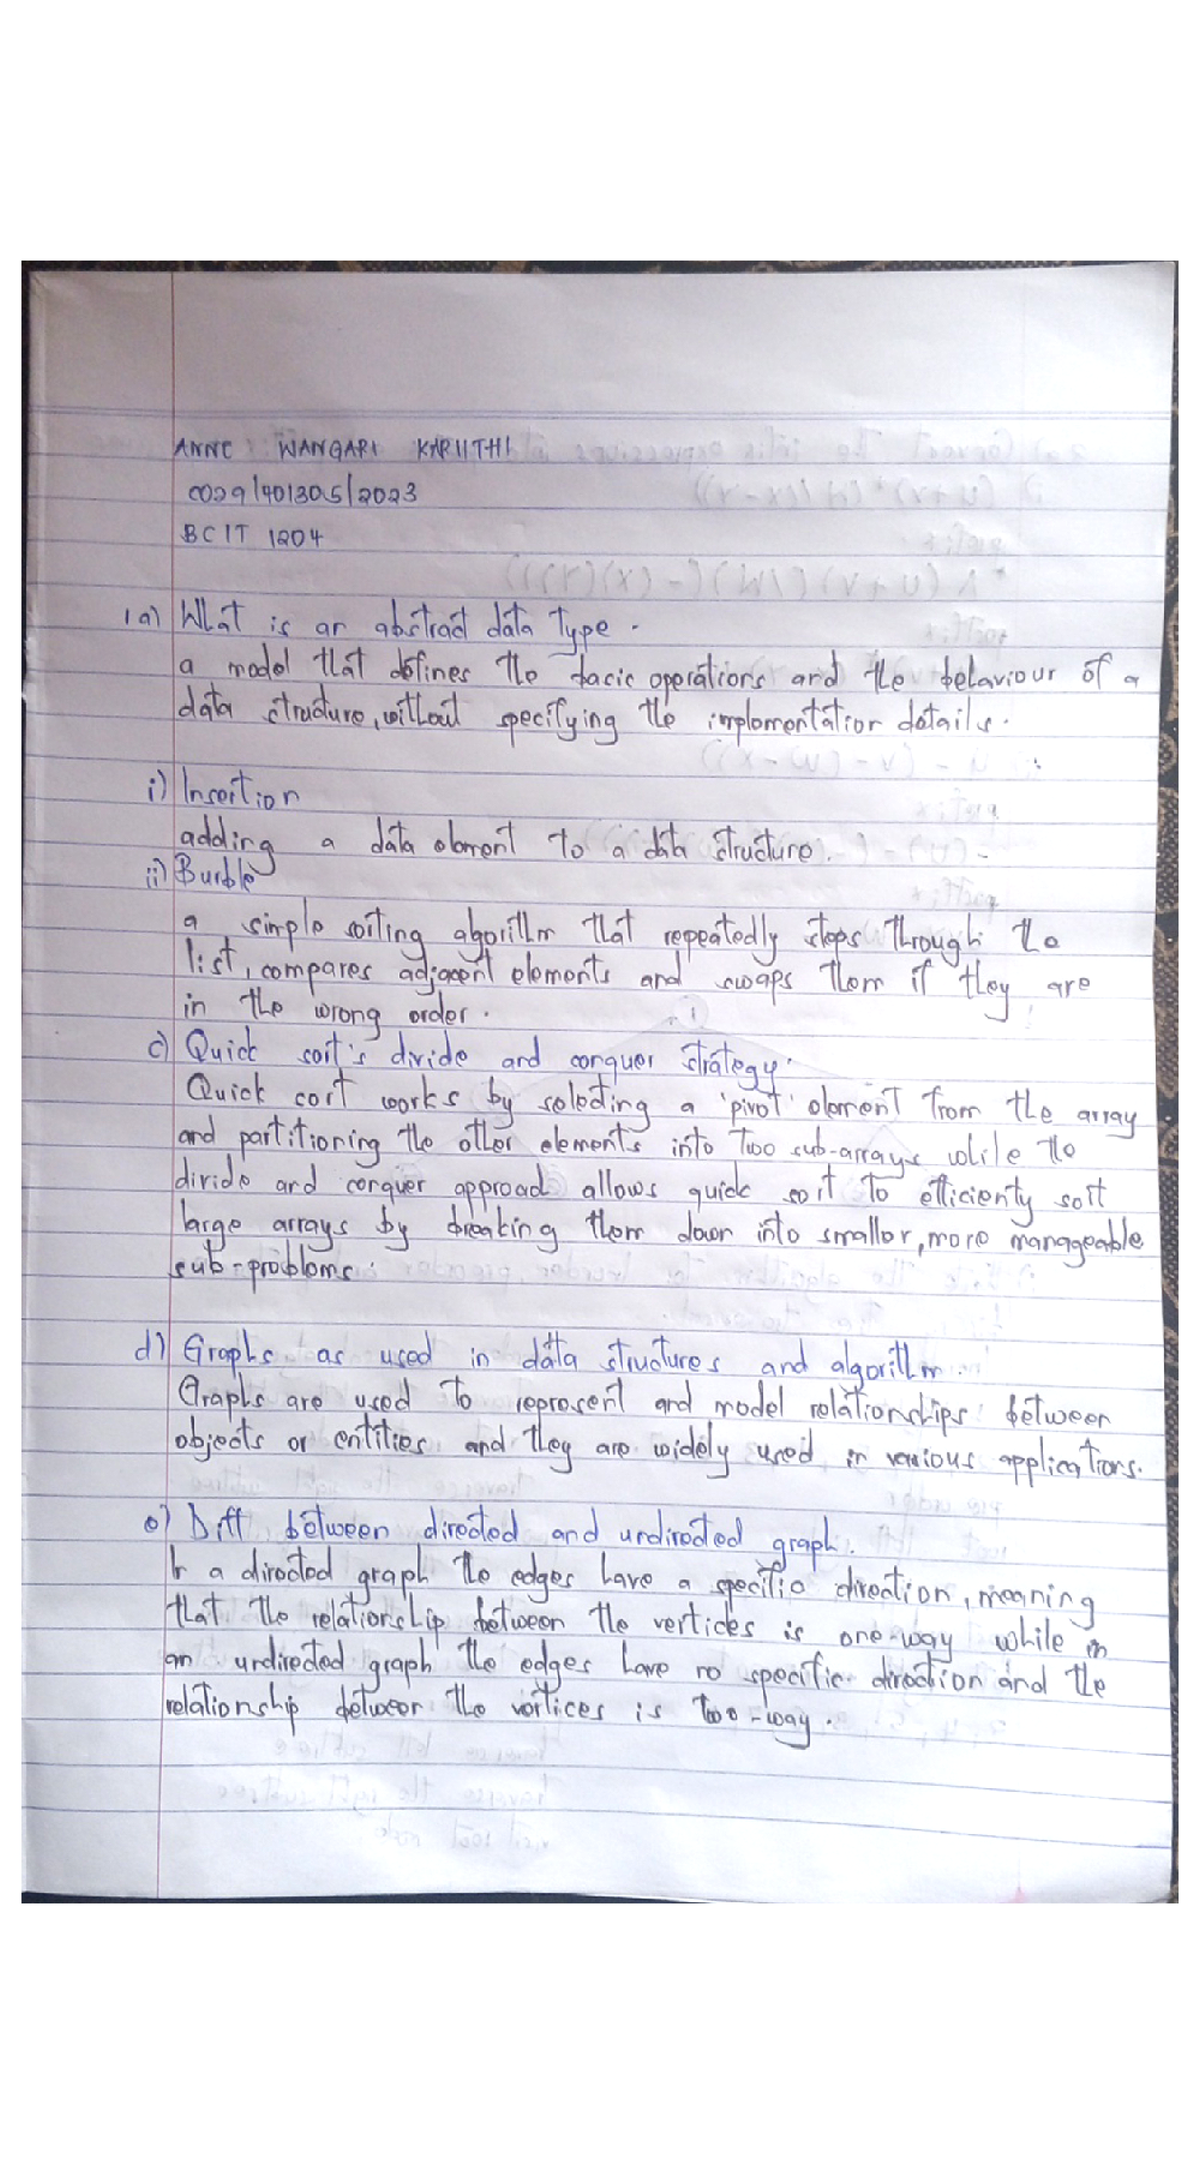 ANNE WANGARI KARIITHI
C029/401305/2023
BCIT 1204
1a) What is an abstract data type.
a model that defines the basic operations and the behaviour of a
data structure, without specifying the implementation details.
i) Insertion
adding a data element to a data structure.
ii) Burble
a simple sorting algorithm that repeatedly steps through the
list, compares adjacent elements and swaps them if they are
in the wrong order.
c) Quick sort's divide and conquer strategy.
Quick sort works by selecting a 'pivot' element from the array
and partitioning the other elements into two sub-arrays while the
divide and conquer approach allows quick sort to efficienty sort
large arrays by breaking them down into smaller, more manageable
sub-problems.
d) Graphs as used in data structures and algorithm.
Graphs are used to represent and model relationships between
objects or entities and they are widely used in various applications.
e) Diff between directed and undirected graph.
In a directed graph the edges have a specific direction, meaning
that the relationship between the vertices is one-way while in
an undirected graph the edges have no specific direction and the
relationship between the vertices is two-way.